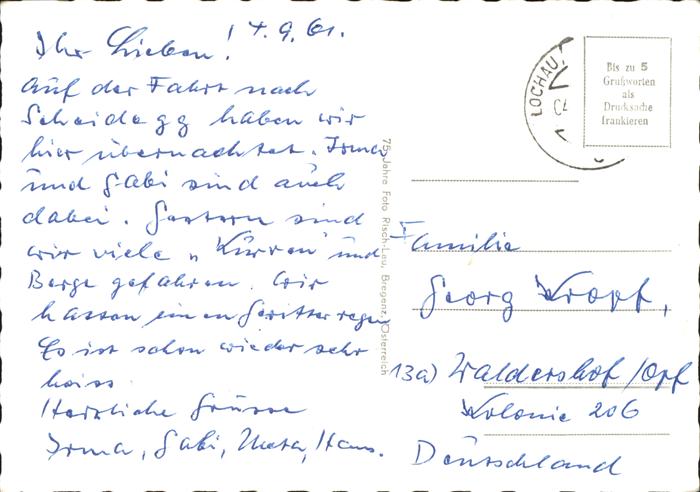 Ihr Lieben! 14.9.61.
Auf der Fahrt nach
Scheidegg haben wir
hier übernachtet. Irma
und Gabi sind auch
dabei. Gestern sind
wir viele „Kurven" und
Berge gefahren. Wir
hatten einen Gewitterregen
Es ist schon wieder sehr
heiss.
Herzliche Grüsse
Irma, Gabi, Meta, Hans.
75 Jahre Foto Risch-Lau, Bregenz, Österreich
LOCHAU
Bis zu 5
Grußworten
als
Drucksache
frankieren
Familie
Georg Kropf,
13a) Waldershof/Opf
Kolonie 206
Deutschland